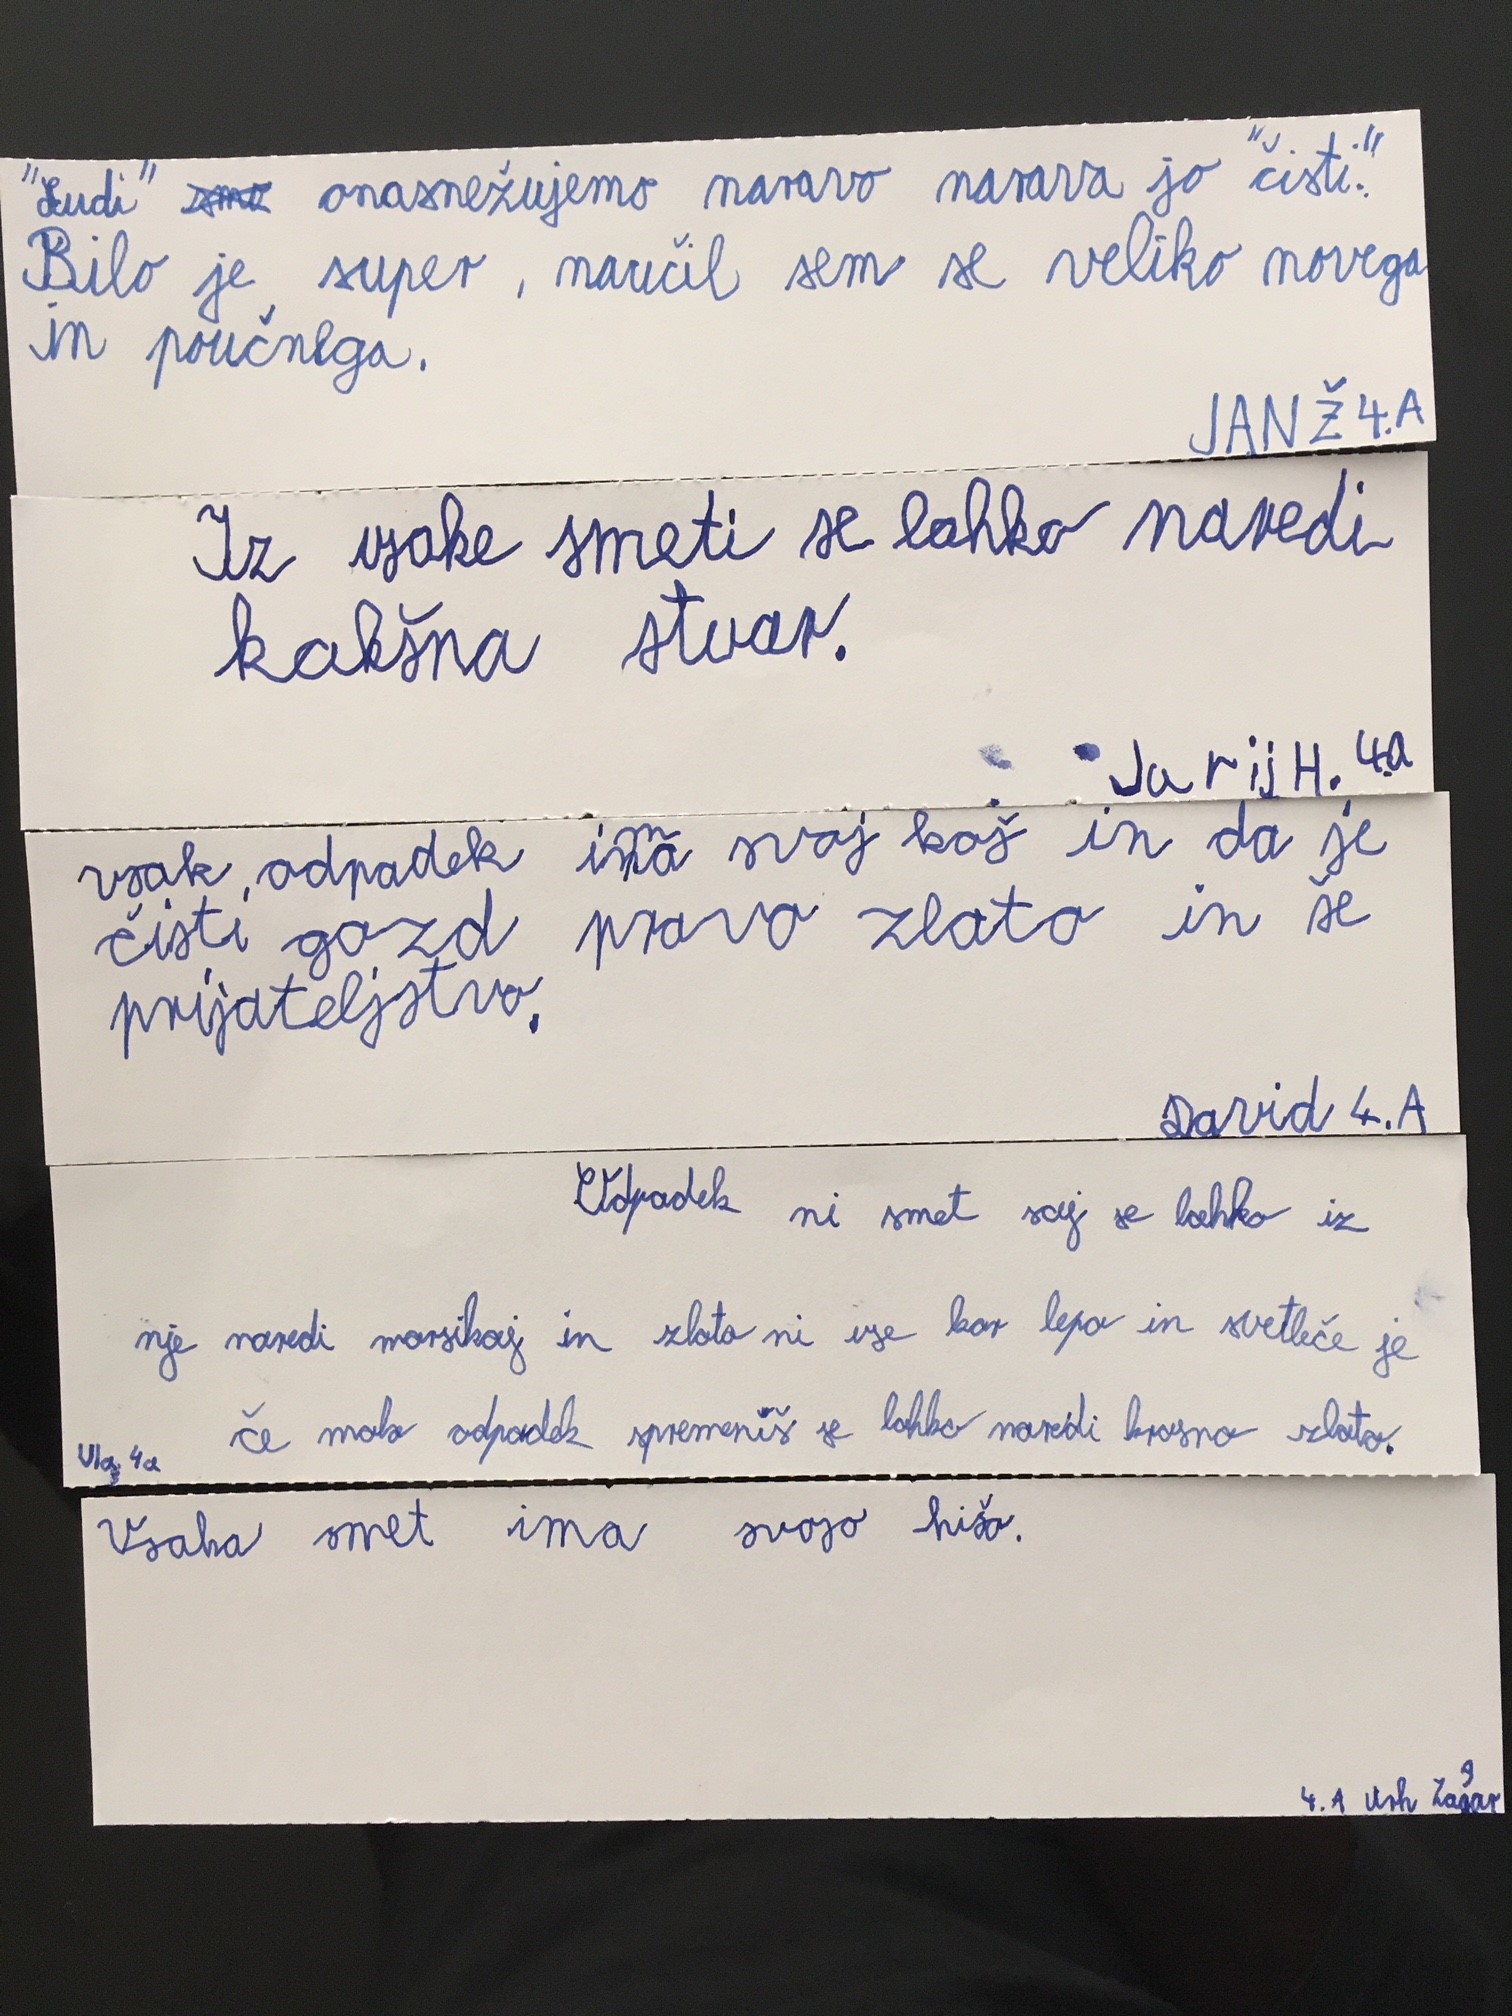 "Ludi" onasnežujemo naravo narava jo "čisti."
Bilo je super, naučil sem se veliko novega
in poučnega.
JAN Ž 4.A
Iz vsake smeti se lahko naredi
kakšna stvar.
Jarij H. 4.a
vsak odpadek ima svoj koš in da je
čisti gozd pravo zlato in še
prijateljstvo.
David 4.A
Odpadek ni smet saj se lahko iz
nje naredi marsikaj in zlato ni vse kar lepo in svetleče je
če malo odpadek spremeniš se lahko naredi krasno zlato.
4a
Vsaka smet ima svojo hišo.
4.A Urh Zagar